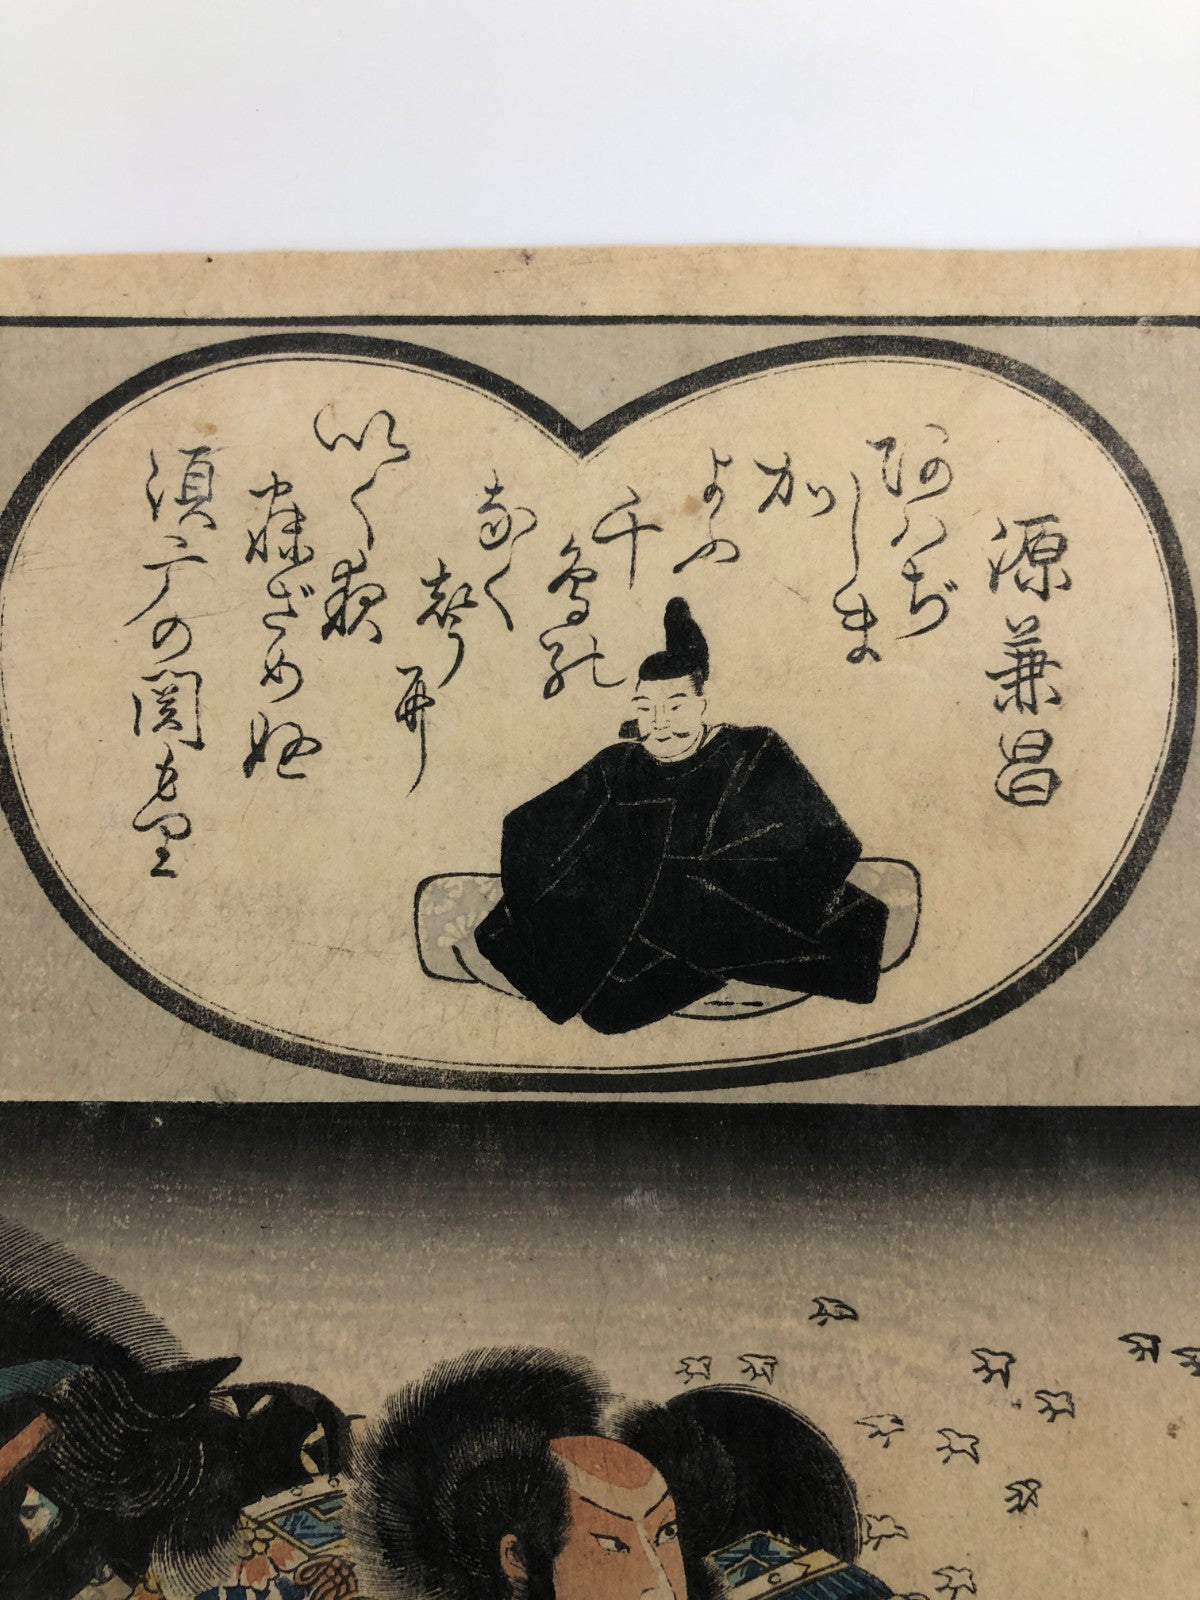 源兼昌
阿ハぢ
しま
か
よふ
千
鳥の
なく
聲
に
いく夜
寐ざめぬ
須广の関もり